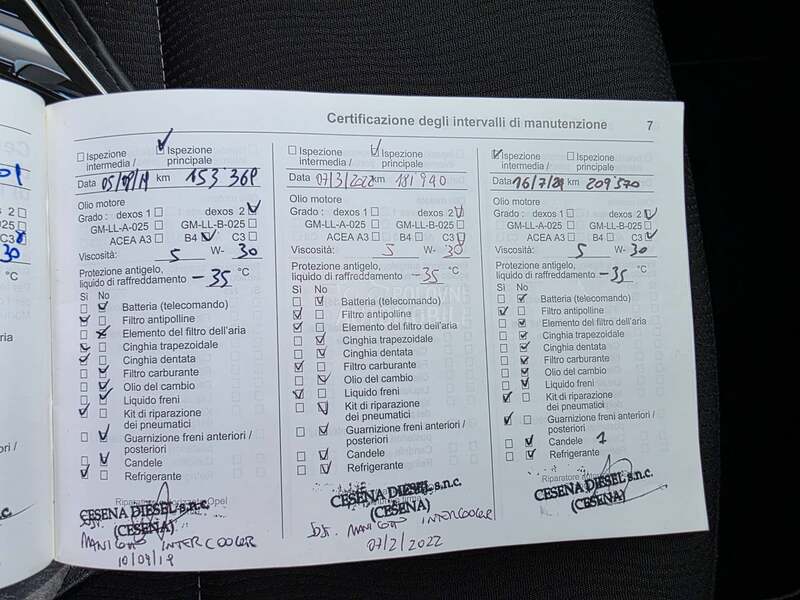 Certificazione degli intervalli di manutenzione 7
Ispezione intermedia /
Ispezione principale
Data 05/09/19 km 153 369
Olio motore
Grado : dexos 1 dexos 2
GM-LL-A-025 GM-LL-B-025
ACEA A3 B4 C3
Viscosità: 5 W- 30
Protezione antigelo,
liquido di raffreddamento -35 °C
Sì No
Batteria (telecomando)
Filtro antipolline
Elemento del filtro dell'aria
Cinghia trapezoidale
Cinghia dentata
Filtro carburante
Olio del cambio
Liquido freni
Kit di riparazione
dei pneumatici
Guarnizione freni anteriori /
posteriori
Candele
Refrigerante
CESENA DIESEL s.n.c.
(CESENA)
MANICOTTO INTERCOOLER
10/09/19
Ispezione intermedia /
Ispezione principale
Data 07/3/2022 km 181 940
Olio motore
Grado : dexos 1 dexos 2
GM-LL-A-025 GM-LL-B-025
ACEA A3 B4 C3
Viscosità: 5 W- 30
Protezione antigelo,
liquido di raffreddamento -35 °C
Sì No
Batteria (telecomando)
Filtro antipolline
Elemento del filtro dell'aria
Cinghia trapezoidale
Cinghia dentata
Filtro carburante
Olio del cambio
Liquido freni
Kit di riparazione
dei pneumatici
Guarnizione freni anteriori /
posteriori
Candele
Refrigerante
CESENA DIESEL s.n.c.
(CESENA)
SOST. MANICOTTO INTERCOOLER
07/2/2022
Ispezione intermedia /
Ispezione principale
Data 16/7/24 km 209'570
Olio motore
Grado : dexos 1 dexos 2
GM-LL-A-025 GM-LL-B-025
ACEA A3 B4 C3
Viscosità: 5 W- 30
Protezione antigelo,
liquido di raffreddamento -35 °C
Sì No
Batteria (telecomando)
Filtro antipolline
Elemento del filtro dell'aria
Cinghia trapezoidale
Cinghia dentata
Filtro carburante
Olio del cambio
Liquido freni
Kit di riparazione
dei pneumatici
Guarnizione freni anteriori /
posteriori
Candele 1
Refrigerante
CESENA DIESEL s.n.c.
(CESENA)